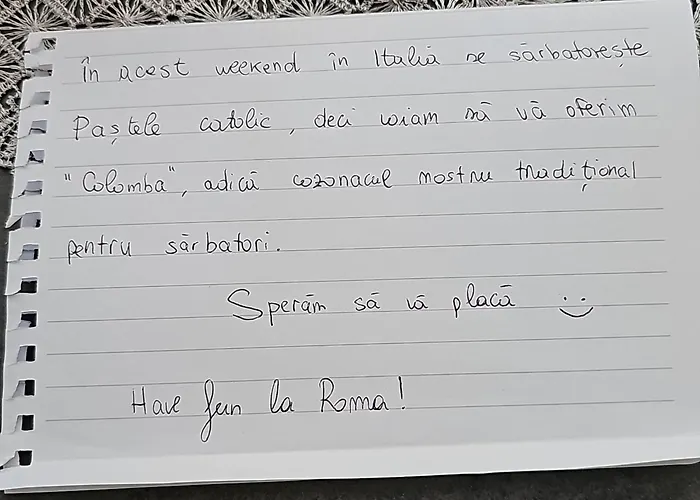 În acest weekend în Italia se sărbatorește
Paștele catolic, deci voiam să vă oferim
"Colomba", adică cozonacul nostru tradițional
pentru sărbatori.
Sperăm să vă placă :)
Have fun la Roma!